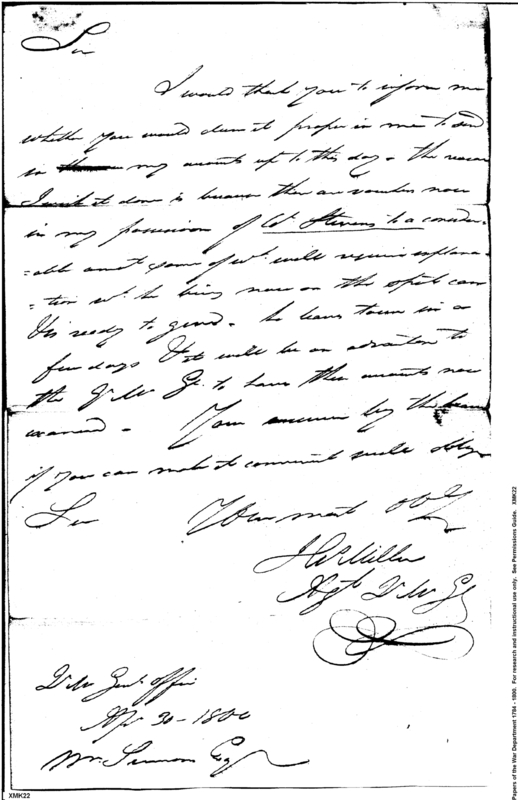 Sir
I would thank you to inform me
whether you would deem it proper in me to send
in my accounts up to this day - the reason
I wish it done is because there are vouchers now
in my possession of Col Stevens to a consider-
-able amot some of wh will require explana-
-tion wh he being now on the spot can
& is ready to give - he leaves town in a
few days & it will be an advantage to
the Q M Gl to have these accounts now
examined - Your answer by the bearer
if you can make it convenient will oblige
Sir Your most obt
J Wn Miller
Agt Q M Gl
Q M Genl office
Apr 30 - 1800
Wm Simmons Esq
Papers of the War Department 1784 - 1800. For research and instructional use only. See Permissions Guide. XMK22
XMK22